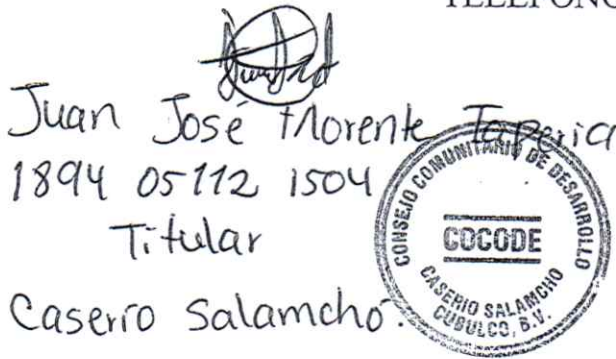 TELEFONO
Juan José Morente Taperia
1894 05112 1504
Titular
Caserío Salamchó.
CONSEJO COMUNITARIO DE DESARROLLO
COCODE
CASERIO SALAMCHO
CUBULCO, B.V.